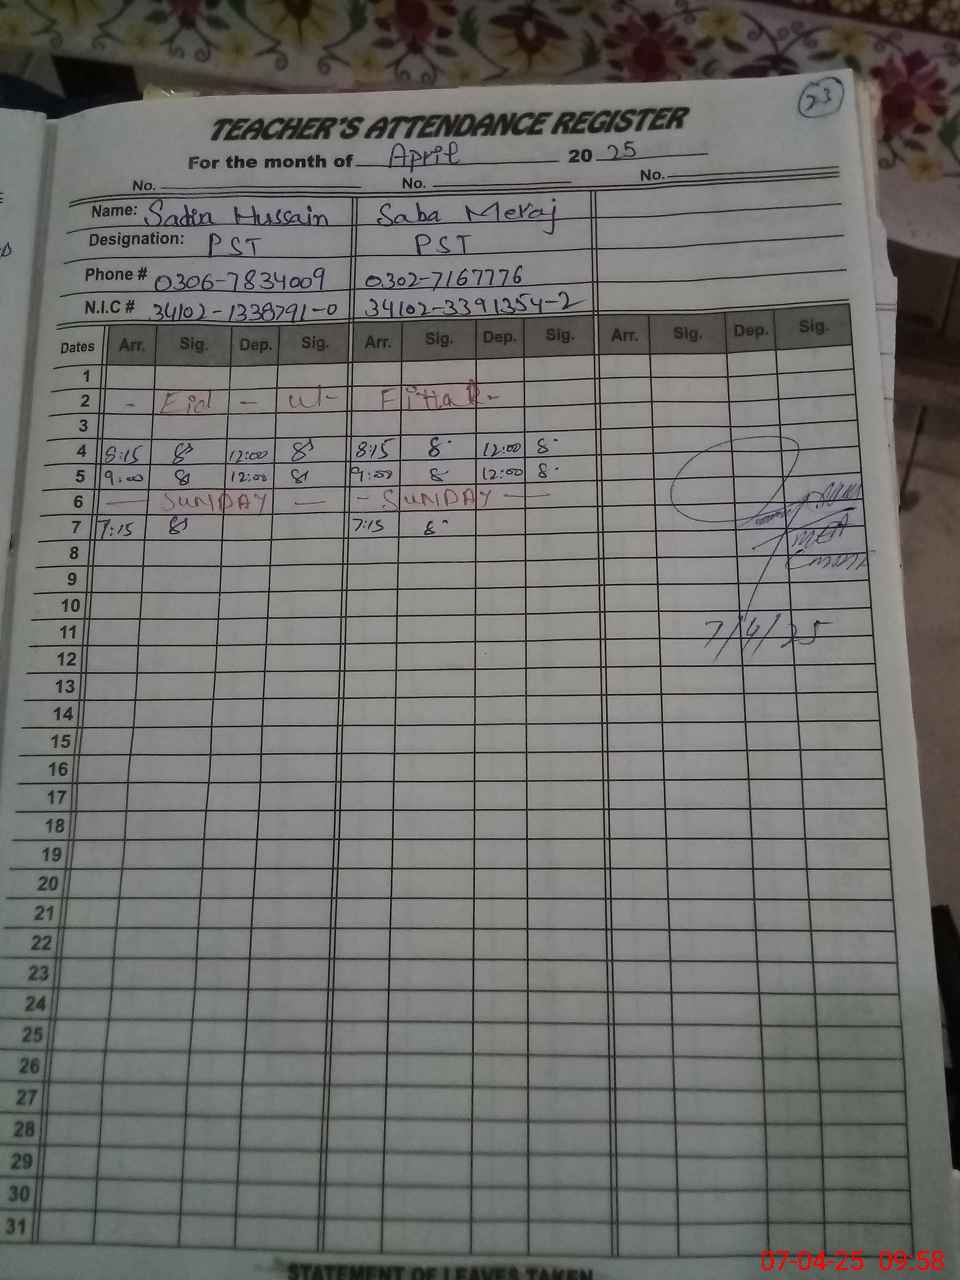 23
TEACHER'S ATTENDANCE REGISTER
For the month of April 20 25
No. No. No.
Name: Sadia Hussain Saba Meraj
Designation: PST PST
Phone # 0306-7834009 0302-7167776
N.I.C # 34102-1338791-0 34102-3391354-2
Dates Arr. Sig. Dep. Sig. Arr. Sig. Dep. Sig. Arr. Sig. Dep. Sig.
1
2 - Eid - ul- Fittar-
3
4 8:15 12:00 8:15 12:00
5 9:00 12:00 9:00 12:00
6 — SUNDAY — - SUNDAY —
7 7:15 7:15
8
9
10
11 7/4/25
12
13
14
15
16
17
18
19
20
21
22
23
24
25
26
27
28
29
30
31
STATEMENT OF LEAVES TAKEN
07-04-25 09:58